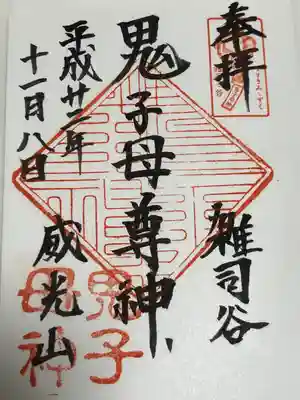 奉拝
雑司谷
鬼子母尊神
威光山
平成廿二年
十一月八日
鬼子
母神